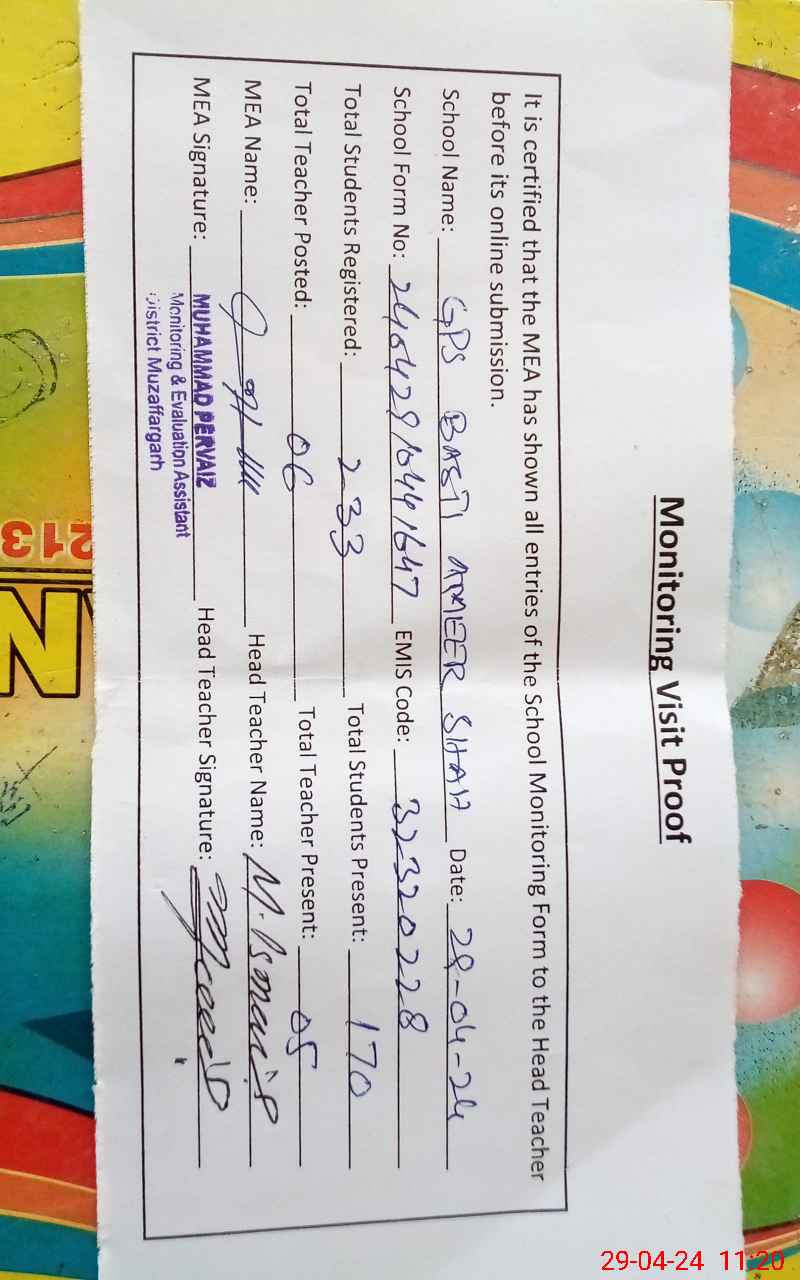 Monitoring Visit Proof
It is certified that the MEA has shown all entries of the School Monitoring Form to the Head Teacher
before its online submission.
School Name: GPS BASTI AMEER SHAH Date: 29-04-24
School Form No: EMIS Code: 32320228
Total Students Registered: 233 Total Students Present: 170
Total Teacher Posted: 06 Total Teacher Present: 05
MEA Name: Head Teacher Name: M.
MEA Signature: MUHAMMAD PERVAIZ Head Teacher Signature:
Monitoring & Evaluation Assistant
District Muzaffargarh
213
29-04-24 11:20